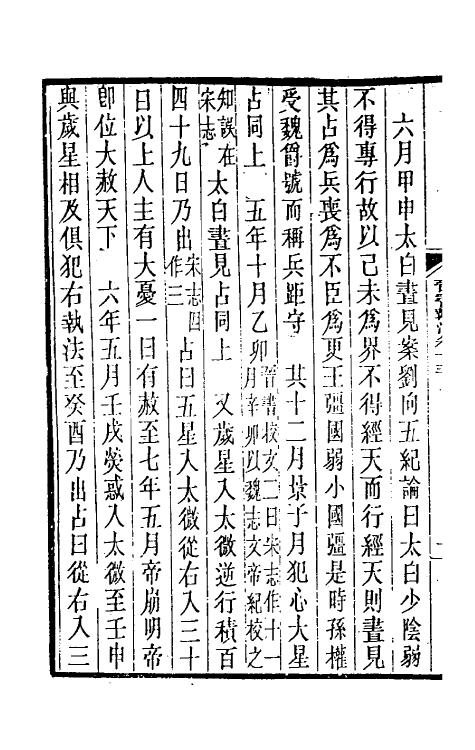 六月甲申太白晝見案劉向五紀論曰太白少陰弱
不得專行故以己未爲界不得經天而行經天則晝見
其占爲兵喪爲不臣爲更王彊國弱小國彊是時孫權
受魏爵號而稱兵距守　其十二月景子月犯心大星
占同上　五年十月乙卯晉書校文二曰宋志作十一月辛卯以魏志文帝紀校之
知誤在宋志太白晝見占同上　又歲星入太微逆行積百
四十九日乃出宋志四作三占曰五星入太微從右入三十
日以上人主有大憂一曰有赦至七年五月帝崩明帝
卽位大赦天下　六年五月壬戌熒惑入太微至壬申
與歲星相及俱犯右執法至癸酉乃出占曰從右入三